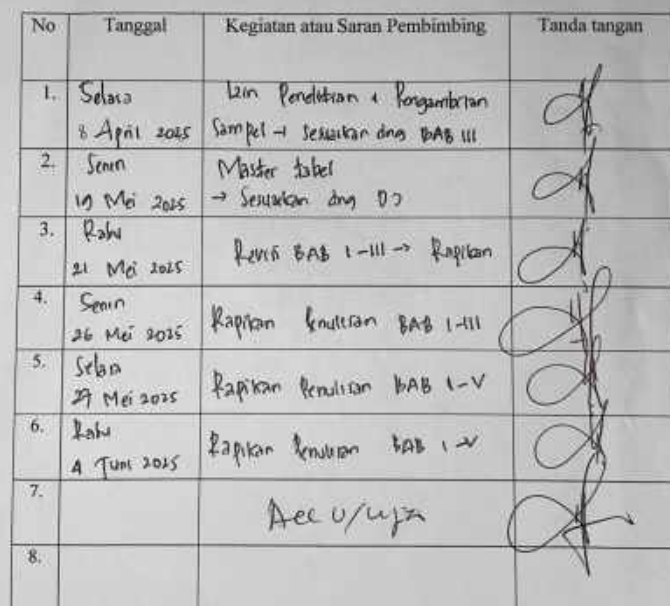 No Tanggal Kegiatan atau Saran Pembimbing Tanda tangan
1. Selasa Izin Penelitian & Pengambilan
8 April 2025 Sampel → Sesuaikan dng BAB III
2. Senin Master tabel
19 Mei 2025 → Sesuaikan dng DO
3. Rabu
21 Mei 2025 Revisi BAB I-III → Rapikan
4. Senin
26 Mei 2025 Rapikan Penulisan BAB I-III
5. Selasa
27 Mei 2025 Rapikan Penulisan BAB I-V
6. Rabu
4 Juni 2025 Rapikan Penulisan BAB I-V
7. Acc u/ujian
8.